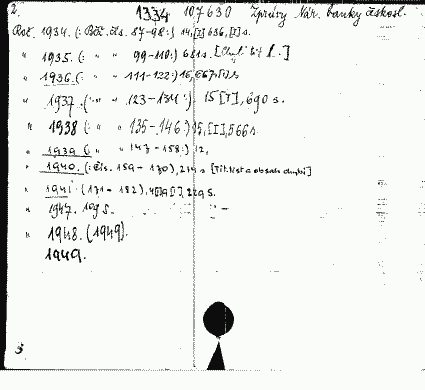 2. 1334 107630 Zprávy Nár. banky Českosl.
Roč. 1934. (: Běž. čs. 87-98:) 14,[I] 636, [I] s.
" 1935. (: " " 99-110:) 681 s. [Chybí čís. 1.]
" 1936. (: " " 111-122:) 16,667 [1] s
" 1937. (: " " 123-134:) 15 [I], 690 s.
" 1938 (: " 135-146:) 15, [I], 566 s.
" 1939 (: " " 147-158:) 12,
" 1940. (: čís. 159-170), 214 s [Tit. list a obsah chybí]
" 1941 (171-182), 229 s.
" 1947. 109 s.
" 1948. (1949).
1949.
3